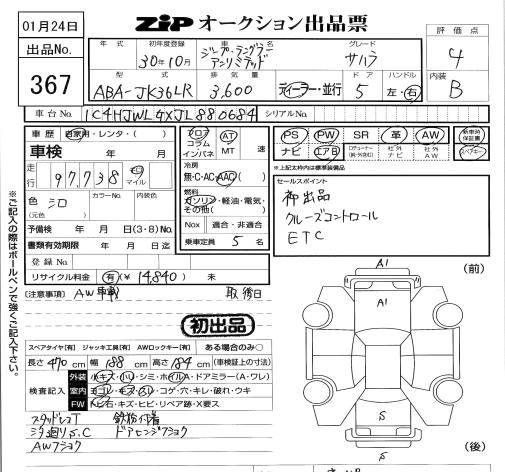 01月24日
ZIP オークション出品票
評価点
出品No.
367
年式 初年度登録 車名 グレード
30年10月 ジープ・ラングラー アンリミテッド サハラ
4
型式 排気量 ドア ハンドル
内装
ABA-JK36LR 3,600 ディーラー・並行 5 左・右
B
車台No. 1C4HJWLGXJL880684 シリアルNo.
車歴 自家用・レンタ・( )
フロア コラム インパネ AT MT 速
PS PW SR 革 AW 新車時保証書
車検 年 月
ナビ エアB 社外ナビ 社外AW
冷房
無・C・AC・AAC
※上記太枠内は標準装備品
走行 97,738 マイル
燃料
ガソリン・軽油・電気・その他( )
セールスポイント
色 シロ (元色) カラーNo. 内装色
初出品
クルーズコントロール
ETC
予備検 年 月 日(3・8)No.
Nox 適合・非適合
書類有効期限 年 月 日迄
乗車定員 5 名
登録No.
リサイクル料金 有(¥ 14,840) 未
[注意事項]
初出品
スペアタイヤ[有] ジャッキ工具[有] AWロックキー[有] ある場合のみ○
長さ 470 cm 幅 188 cm 高さ 184 cm (車検証上の寸法)
検査記入
外装 小キズ・ハリ・シミ・ホイルA・ドアミラー(A・ワレ)
室内 ヨゴレ・キズ・スレ・コゲ・穴・ハガレ・キレ・破れ・ウキ
FW トビ石・キズ・ヒビ・リペア跡・X要ス
ドアヒンジフショク
AWフショク
(前)
A1
A1
S
S
(後)
※ご記入の際はボールペンで強くご記入下さい。